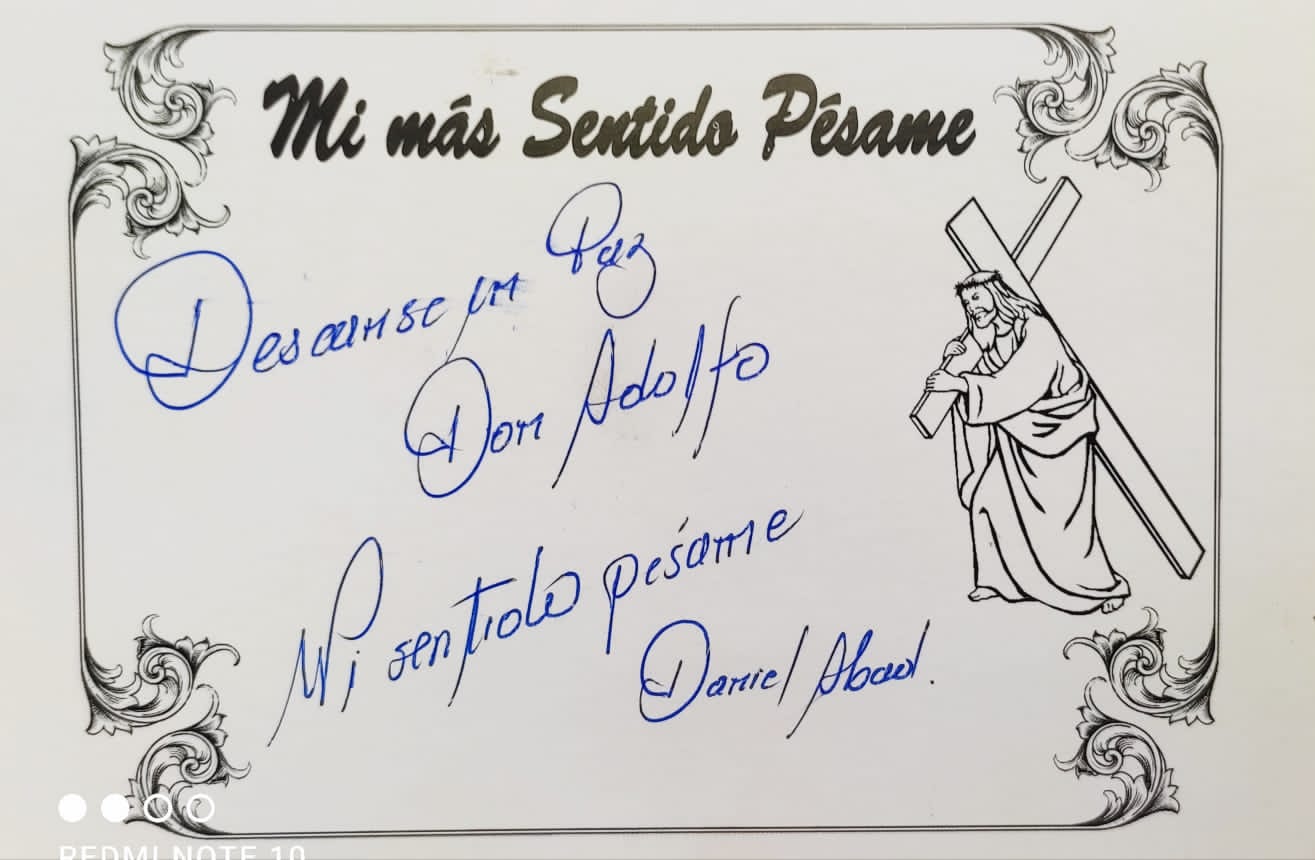 Mi más Sentido Pésame
Descanse en Paz
Don Adolfo
Mi sentido pesáme
Daniel Abad.
REDMI NOTE 10